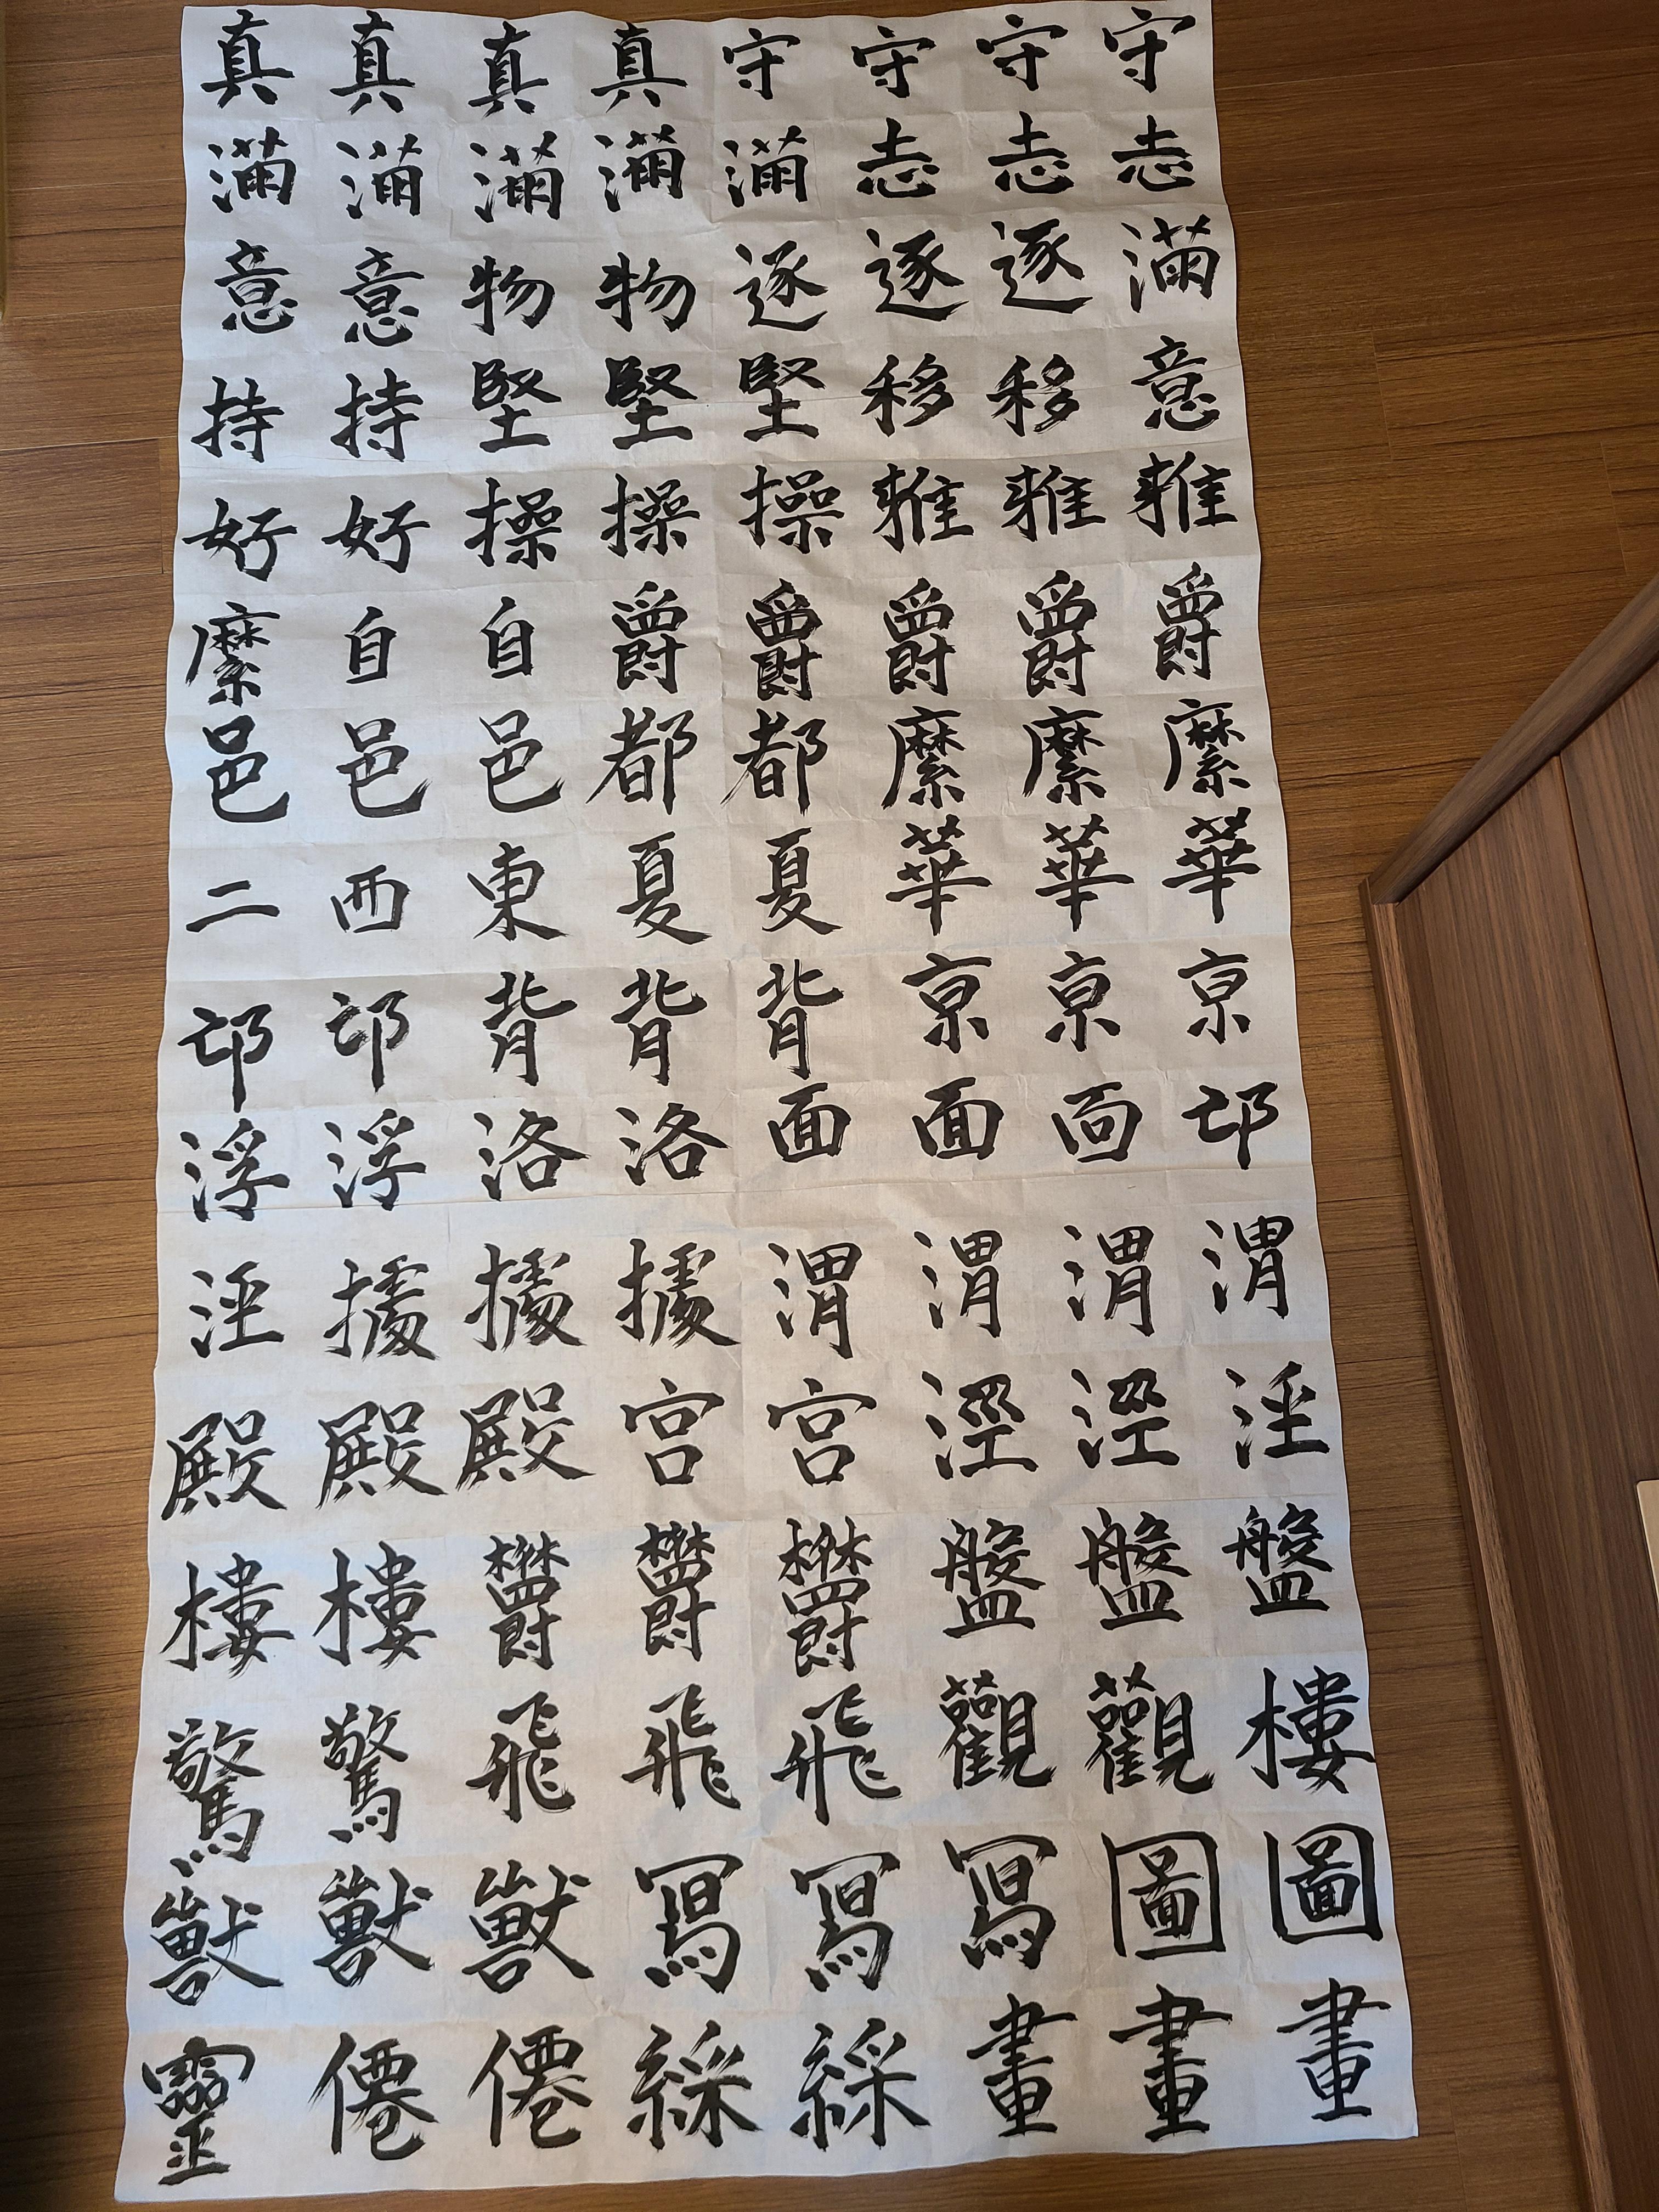 守守守守真真真真
志志志滿滿滿滿滿
滿逐逐逐物物意意
意移移堅堅堅持持
雅雅雅操操操好好
爵爵爵爵爵自自縻
縻縻縻都都邑邑邑
華華華夏夏東西二
京京京背背背邙邙
邙面面面洛洛浮浮
渭渭渭渭據據據涇
涇涇涇宮宮殿殿殿
盤盤盤鬱鬱鬱樓樓
樓觀觀飛飛飛驚驚
圖圖寫寫寫獸獸獸
畫畫畫綵綵僊僊靈